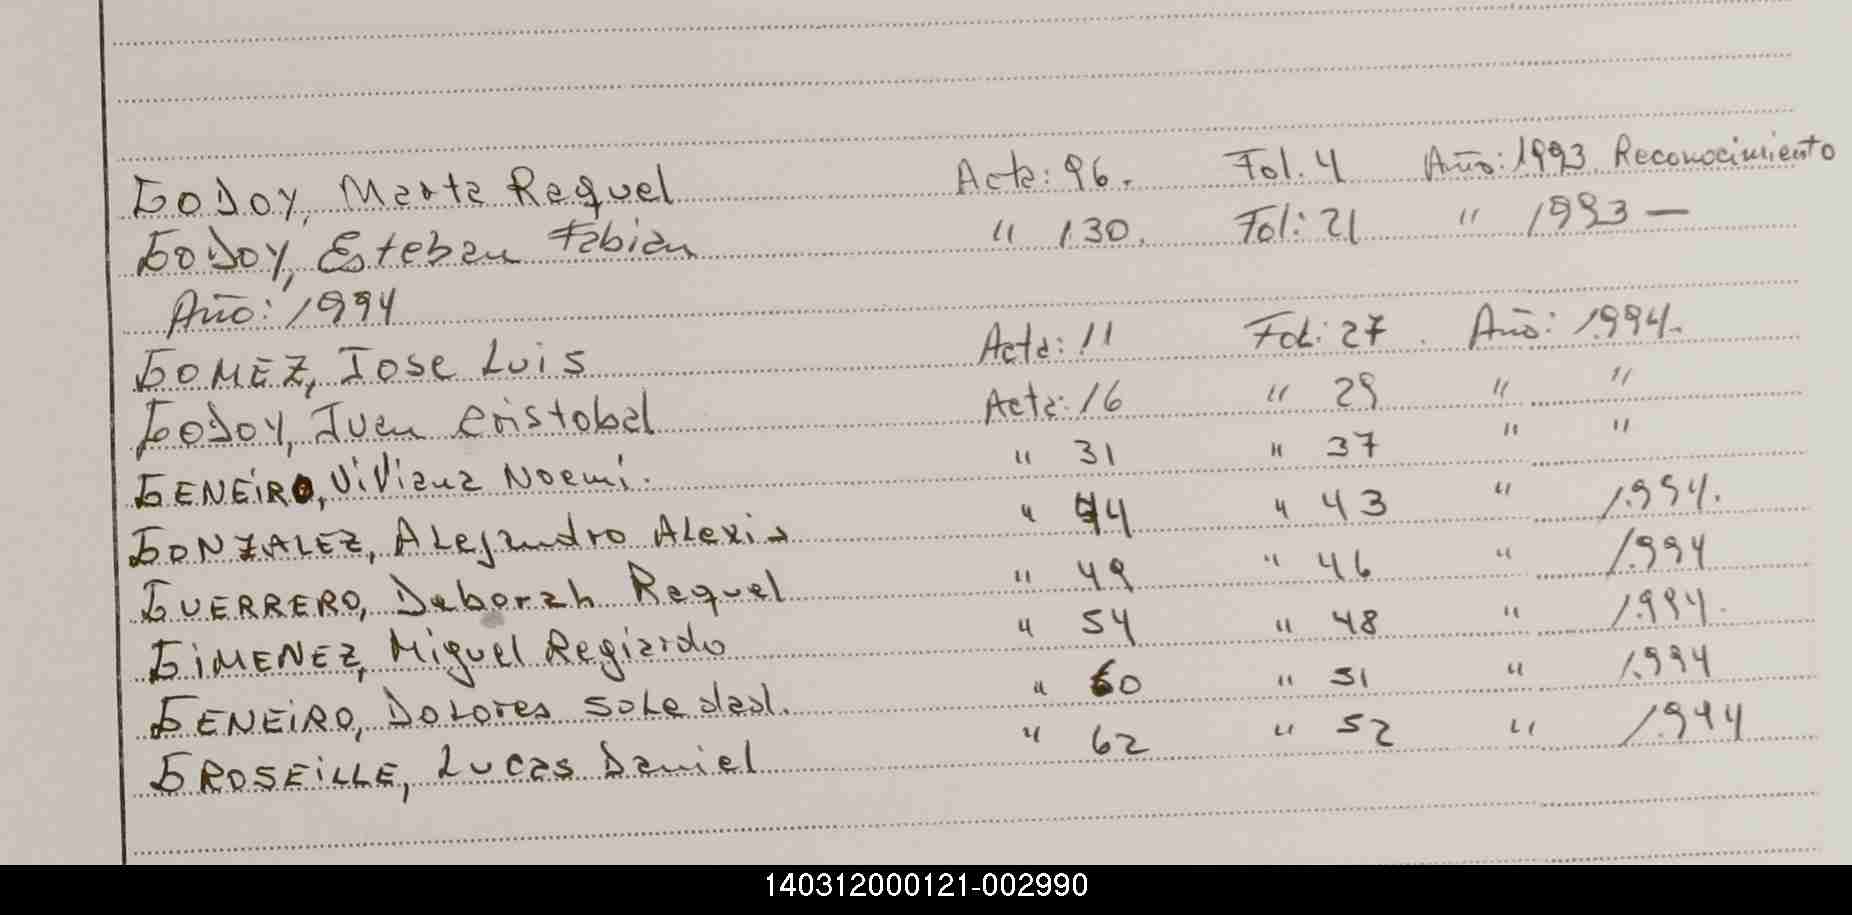 GODOY, Marta Raquel Acta: 96. Fol. 4 Año: 1993 Reconocimiento
GODOY, Esteban Fabian " 130. Fol: 21 " 1993 —
Año: 1994
GOMEZ, Jose Luis Acta: 11 Fol: 27 Año: 1994.
GODOY, Juan Cristobal Acta: 16 " 29 " "
GENEIRO, Viviana Noemi. " 31 " 37 " "
GONZALEZ, Alejandro Alexis " 44 " 43 " 1.994.
GUERRERO, Deborah Raquel " 49 " 46 " 1.994
GIMENEZ, Miguel Regiardo " 54 " 48 " 1.994.
GENEIRO, Dolores Soledad. " 60 " 51 " 1.994
GROSEILLE, Lucas Daniel " 62 " 52 " 1.994
140312000121-002990